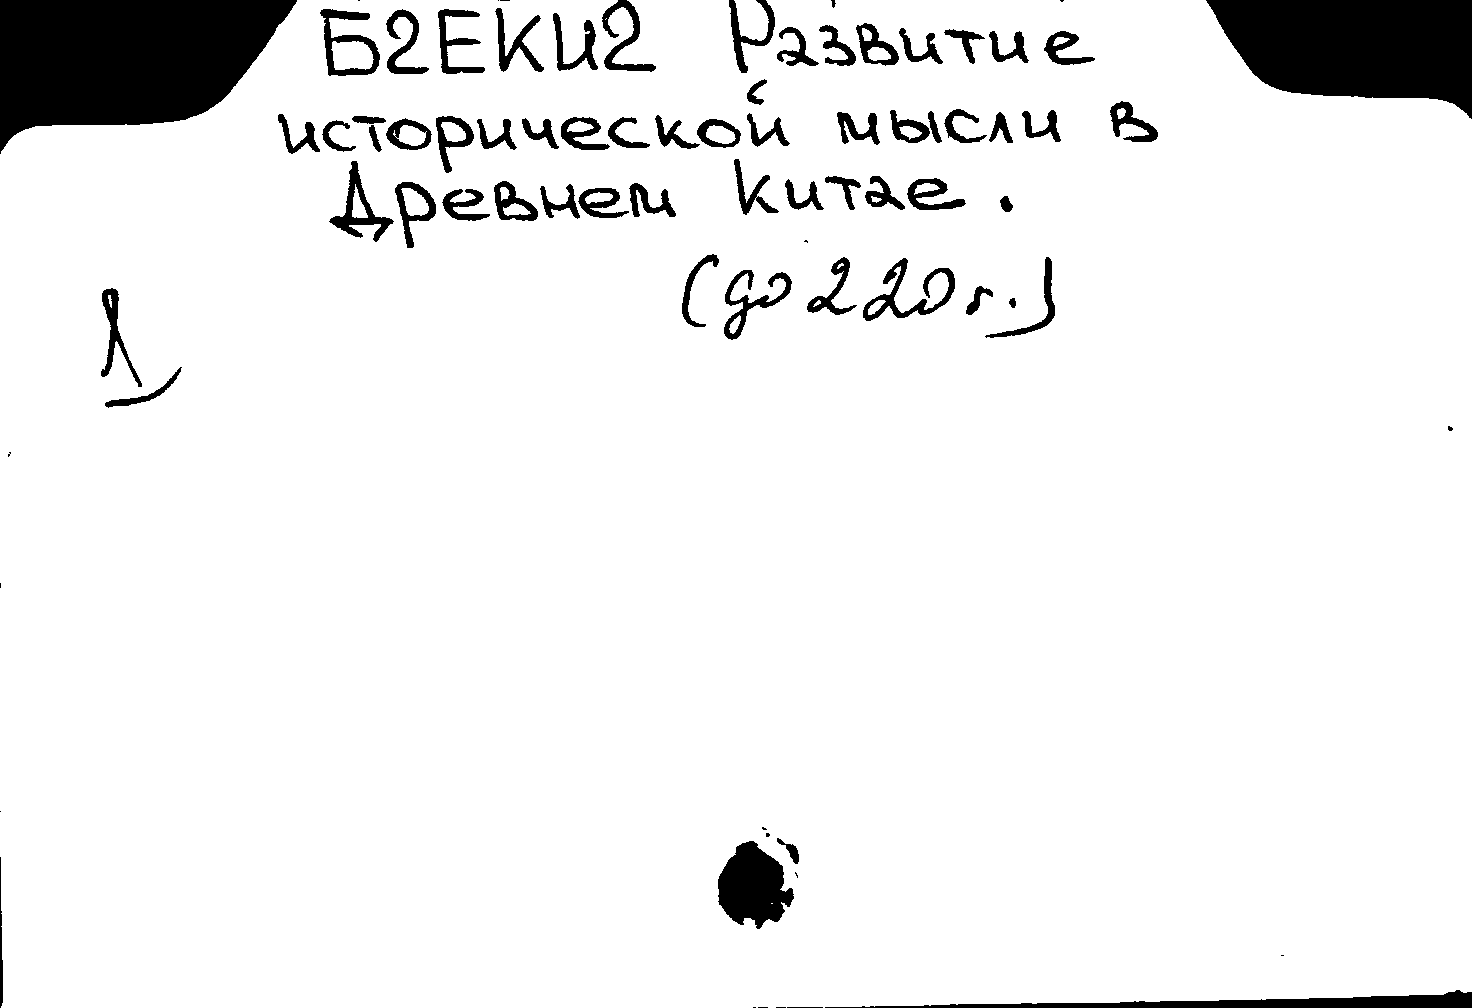 Б2ЕКИ2 Развитие
исторической мысли в
Древнем Китае.
(до 220 г.)
1